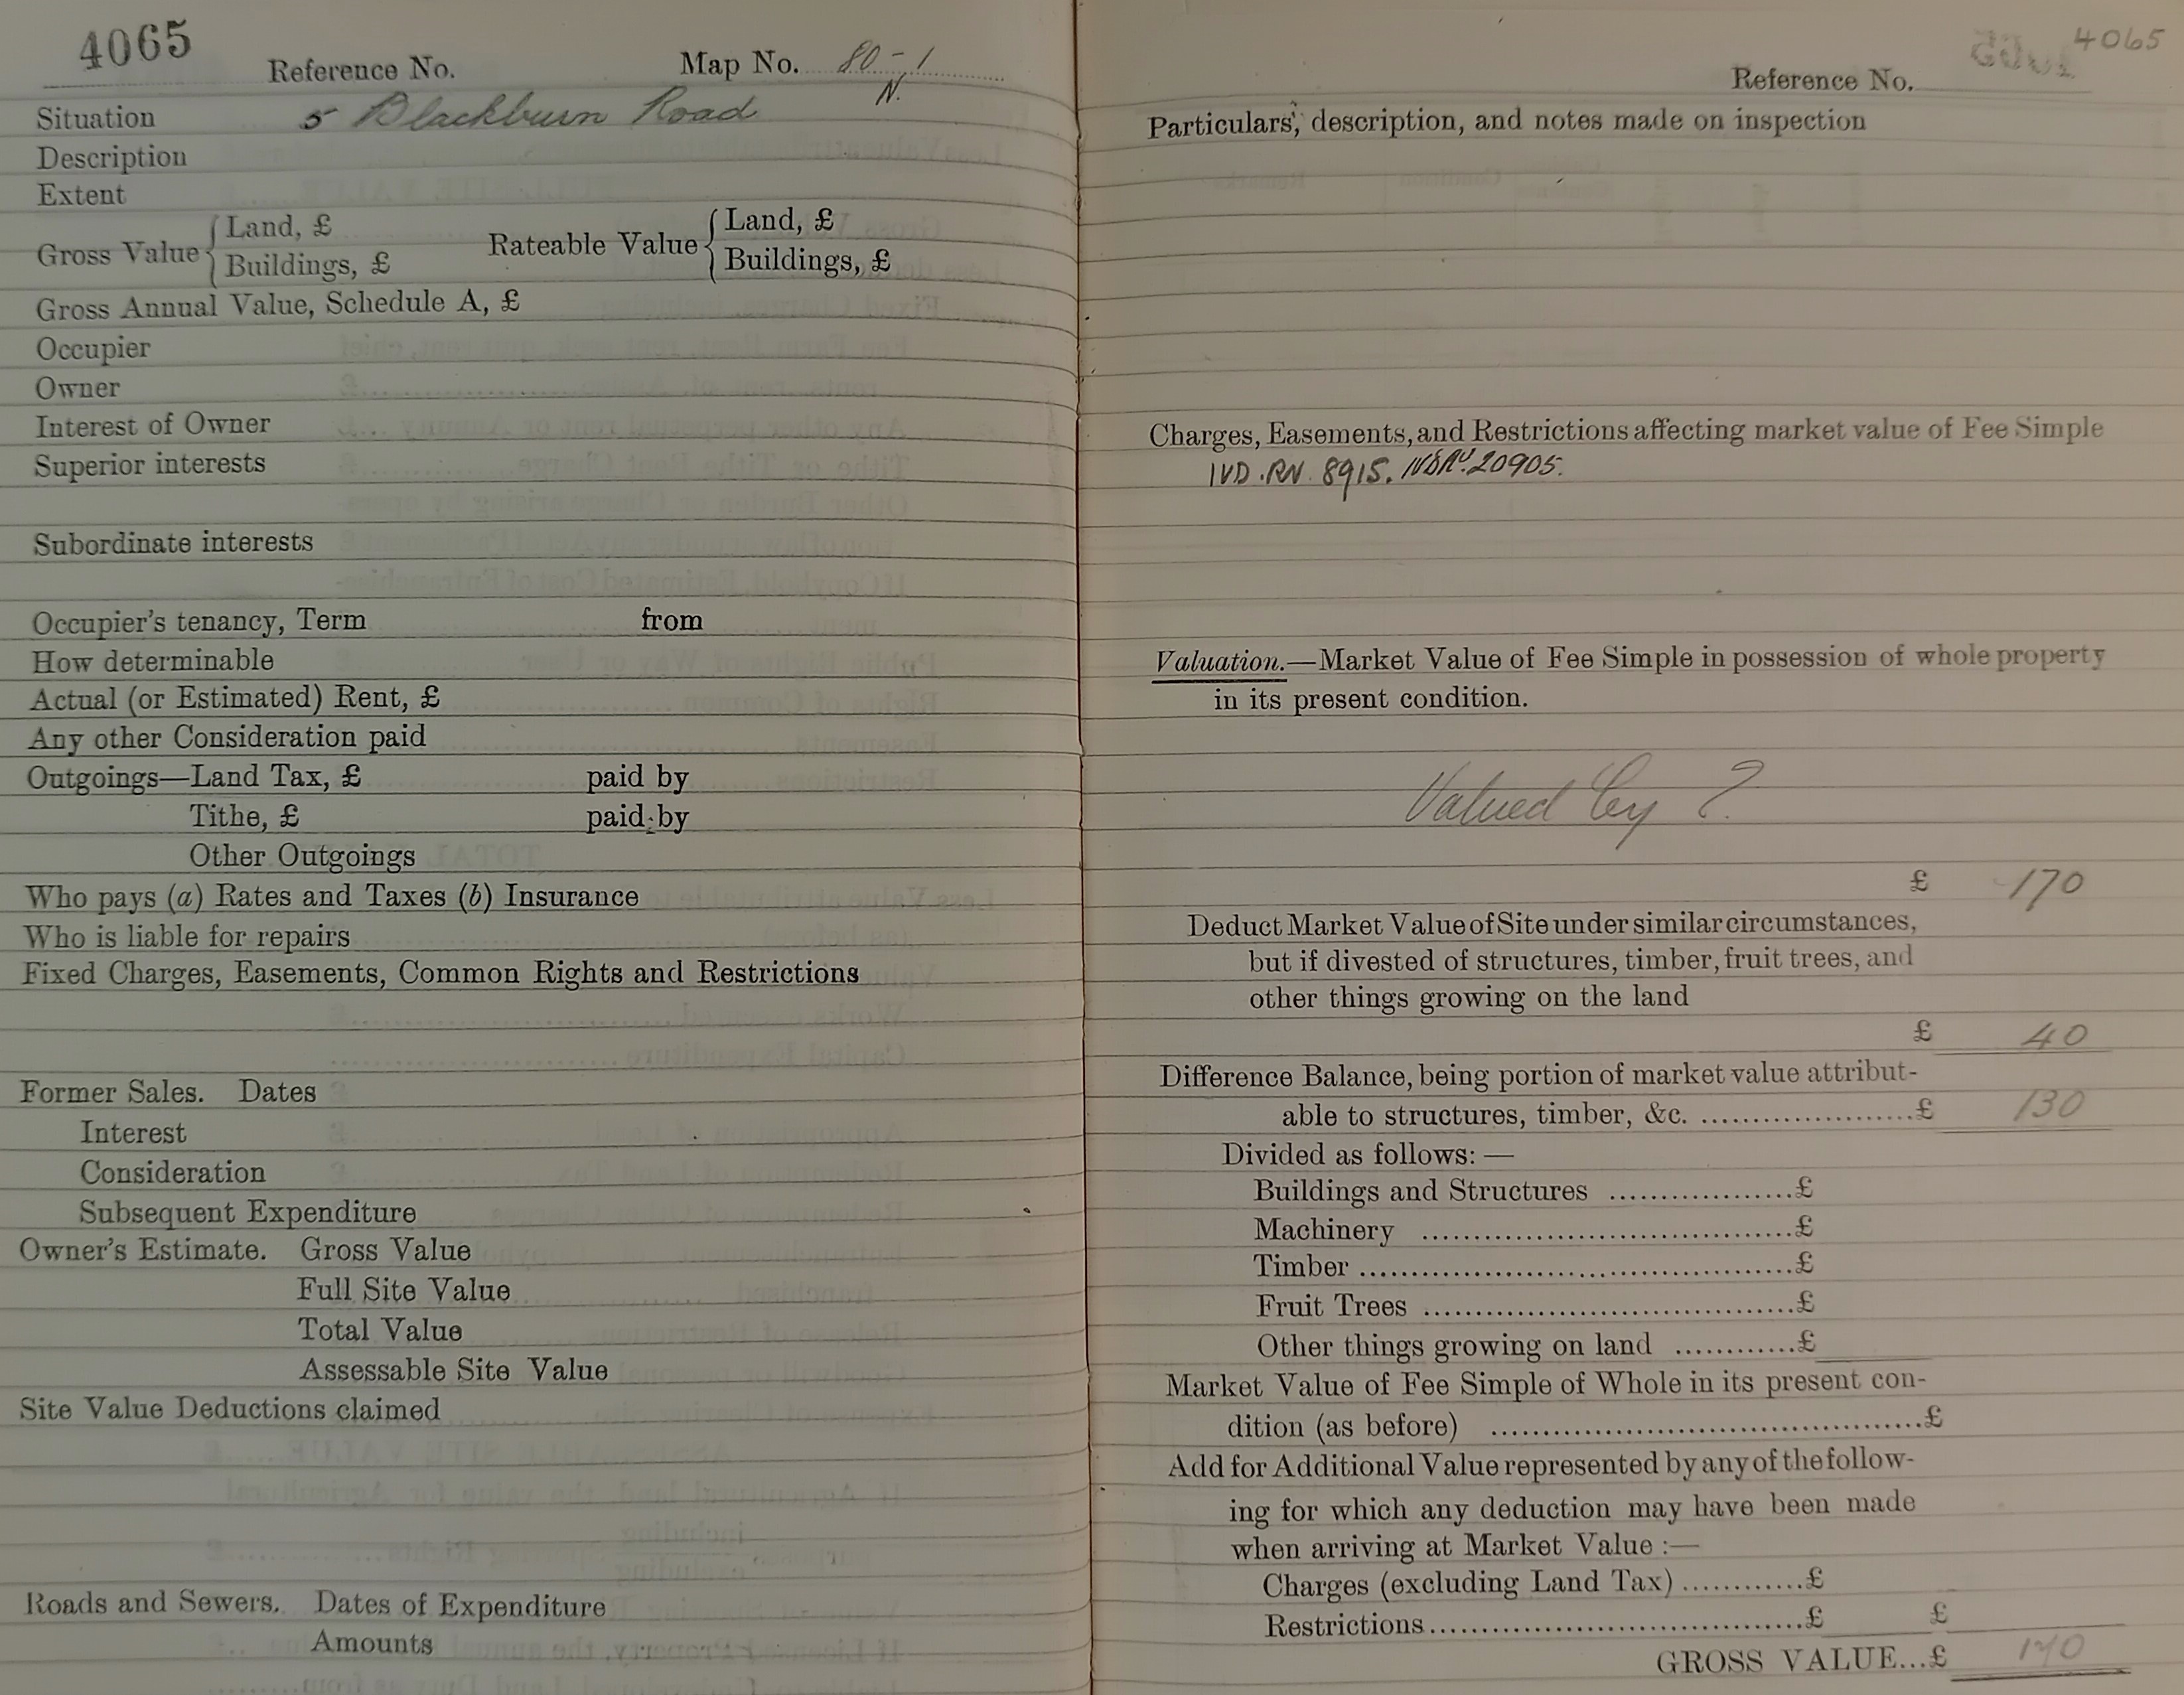 4065
Reference No. Map No. 80-1
N.
Situation 5 Blackburn Road
Description
Extent
Gross Value { Land, £ Rateable Value { Land, £
Buildings, £ Buildings, £
Gross Annual Value, Schedule A, £
Occupier
Owner
Interest of Owner
Superior interests
Subordinate interests
Occupier's tenancy, Term from
How determinable
Actual (or Estimated) Rent, £
Any other Consideration paid
Outgoings—Land Tax, £ paid by
Tithe, £ paid by
Other Outgoings
Who pays (a) Rates and Taxes (b) Insurance
Who is liable for repairs
Fixed Charges, Easements, Common Rights and Restrictions
Former Sales. Dates
Interest
Consideration
Subsequent Expenditure
Owner's Estimate. Gross Value
Full Site Value
Total Value
Assessable Site Value
Site Value Deductions claimed
Roads and Sewers. Dates of Expenditure
Amounts
4065
Reference No.
Particulars, description, and notes made on inspection
Charges, Easements, and Restrictions affecting market value of Fee Simple
IVD.RN. 8915. 20905.
Valuation.—Market Value of Fee Simple in possession of whole property
in its present condition.
Valued by ?
£ 170
Deduct Market Value of Site under similar circumstances,
but if divested of structures, timber, fruit trees, and
other things growing on the land
£ 40
Difference Balance, being portion of market value attribut-
able to structures, timber, &c. ....................£ 130
Divided as follows: —
Buildings and Structures ..................£
Machinery ....................................£
Timber ..........................................£
Fruit Trees ....................................£
Other things growing on land ............£
Market Value of Fee Simple of Whole in its present con-
dition (as before) ..........................................£
Add for Additional Value represented by any of the follow-
ing for which any deduction may have been made
when arriving at Market Value :—
Charges (excluding Land Tax) ............£
Restrictions......................................£ £
GROSS VALUE...£ 170